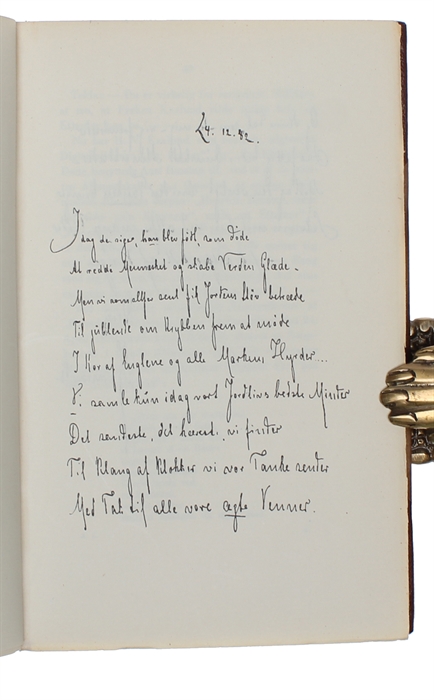 24. 12. 92.
I dag de siger, han blev født, som døde
At redde Mennesket og skabe Verden Glæde.
Men vi som altfor sent til Jordens Støv betraadte
Til jublende om Krybben frem at møde
I Kor af Englene og alle Markens Hyrder...
Vi samle kun idag vort Jordlivs bedste Minder
Det sandeste, det kæreste, vi finder
Til Klang af Klokker vi vor Tanke sender
Med Tak til alle vore ægte Venner.